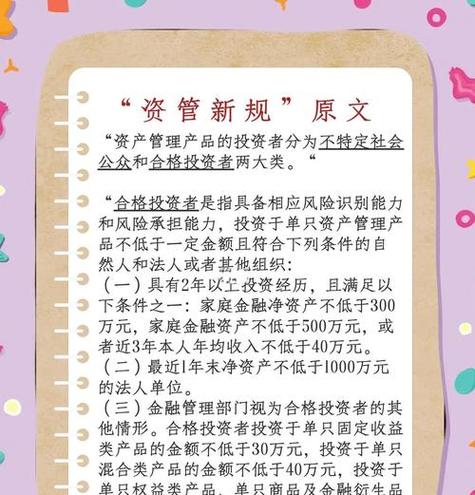 “资管新规”原文
“资产管理产品的投资者分为不特定社会
公众和合格投资者两大类。“
“合格投资者是指具备相应风险识别能力
和风险承担能力，投资于单只资产管理产
品不低于一定金额且符合下列条件的自
然人和法人或者其他组织：
（一）具有2年以上投资经历，且满足以
下条件之一：家庭金融净资产不低于300
万元，家庭金融资产不低于500万元，或
者近3年本人年均收入不低于40万元。
（二）最近1年末净资产不低于1000万元
的法人单位。
（三）金融管理部门视为合格投资者的其
他情形。合格投资者投资于单只固定收益
类产品的金额不低于30万元，投资于单只
混合类产品的金额不低于40万元，投资于
单只权益类产品、单只商品及金融衍生品